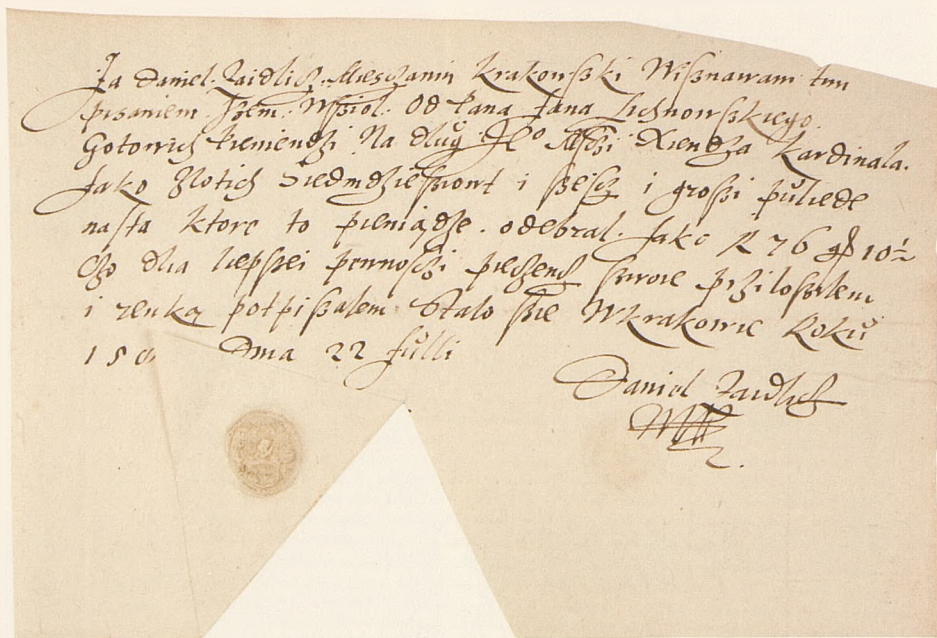 Ja Daniel Zaidlicz Miesczanin Krakowski Wisnawam tim
pisaniem Szem Wsziol Od Pana Jana Lichnowskiego
Gotowich Pieniendzi Na dlug Je° Mszi Xiendza Kardinala.
Jako Zlotich Siedmdziesziont i szescz i groszi puliede
nasta ktore to pieniądze odebral. Jako R 76 gß 10½
Czo dla liepszei pewnosczi pieczencz swoie przilozilem
i renką potpisalem Stalo szie Wkrakowie Rokū
Dnia 22 Julli
Daniel Zaidlicz